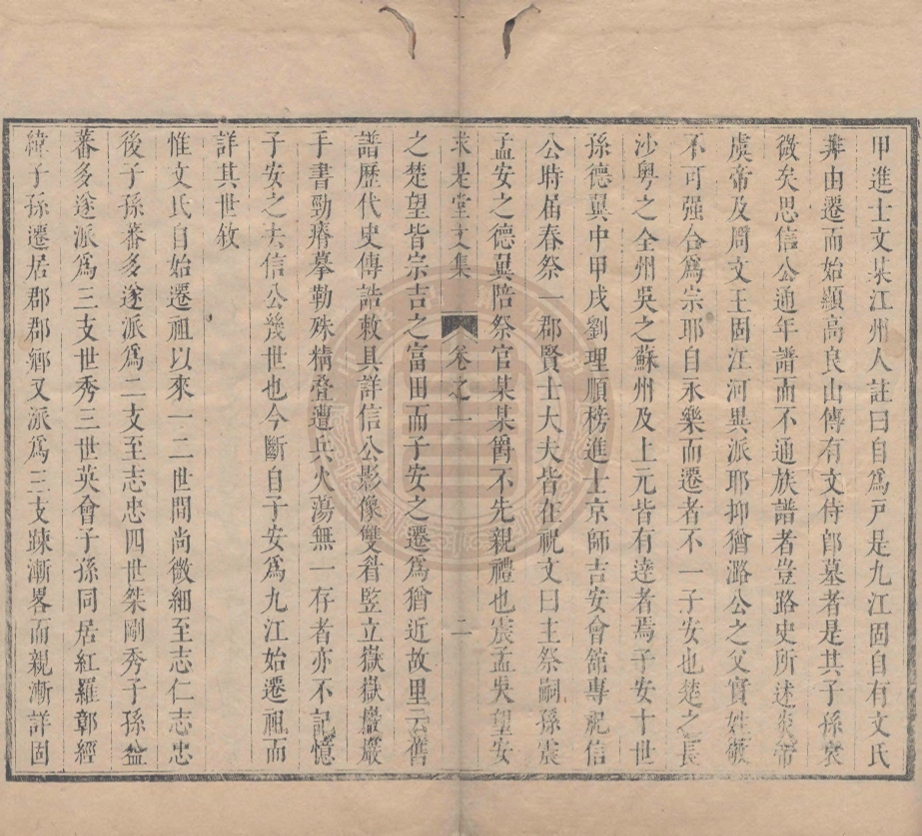 甲進士文某江州人註曰自爲戸是九江固自有文氏
非由遷而始顯高良山傳有文侍郎墓者是其子孫衰
微矣思信公通年譜而不通族譜者豈路史所述炎帝
虞帝及周文王固江河異派耶抑猶潞公之父實姓敬
不可强合爲宗耶自永樂而遷者不一子安也楚之長
沙粤之全州吳之蘇州及上元皆有達者焉子安十世
孫德翼中甲戌劉理順榜進士京師吉安會館專祀信
公時届春祭一郡賢士大夫皆在祝文曰主祭嗣孫震
孟安之德翼陪祭官某某爵不先親禮也震孟吳望安
求是堂文集 卷之一 二
之楚望皆宗吉之富田而子安之遷爲猶近故里云舊
譜歷代史傳誥敕具詳信公影像雙眷竪立嶽嶽巖巖
手書勁瘠摹勒殊精叠遭兵火蕩無一存者亦不記憶
子安之去信公幾世也今斷自子安爲九江始遷祖而
詳其世敘
惟文氏自始遷祖以來一二世間尚微細至志仁志忠
後子孫蕃多遂派爲二支至志忠四世桀剛秀子孫益
蕃多遂派爲三支世秀三世英會子孫同居紅羅鄣經
緯子孫遷居郡郡鄉又派爲三支踈漸畧而親漸詳固